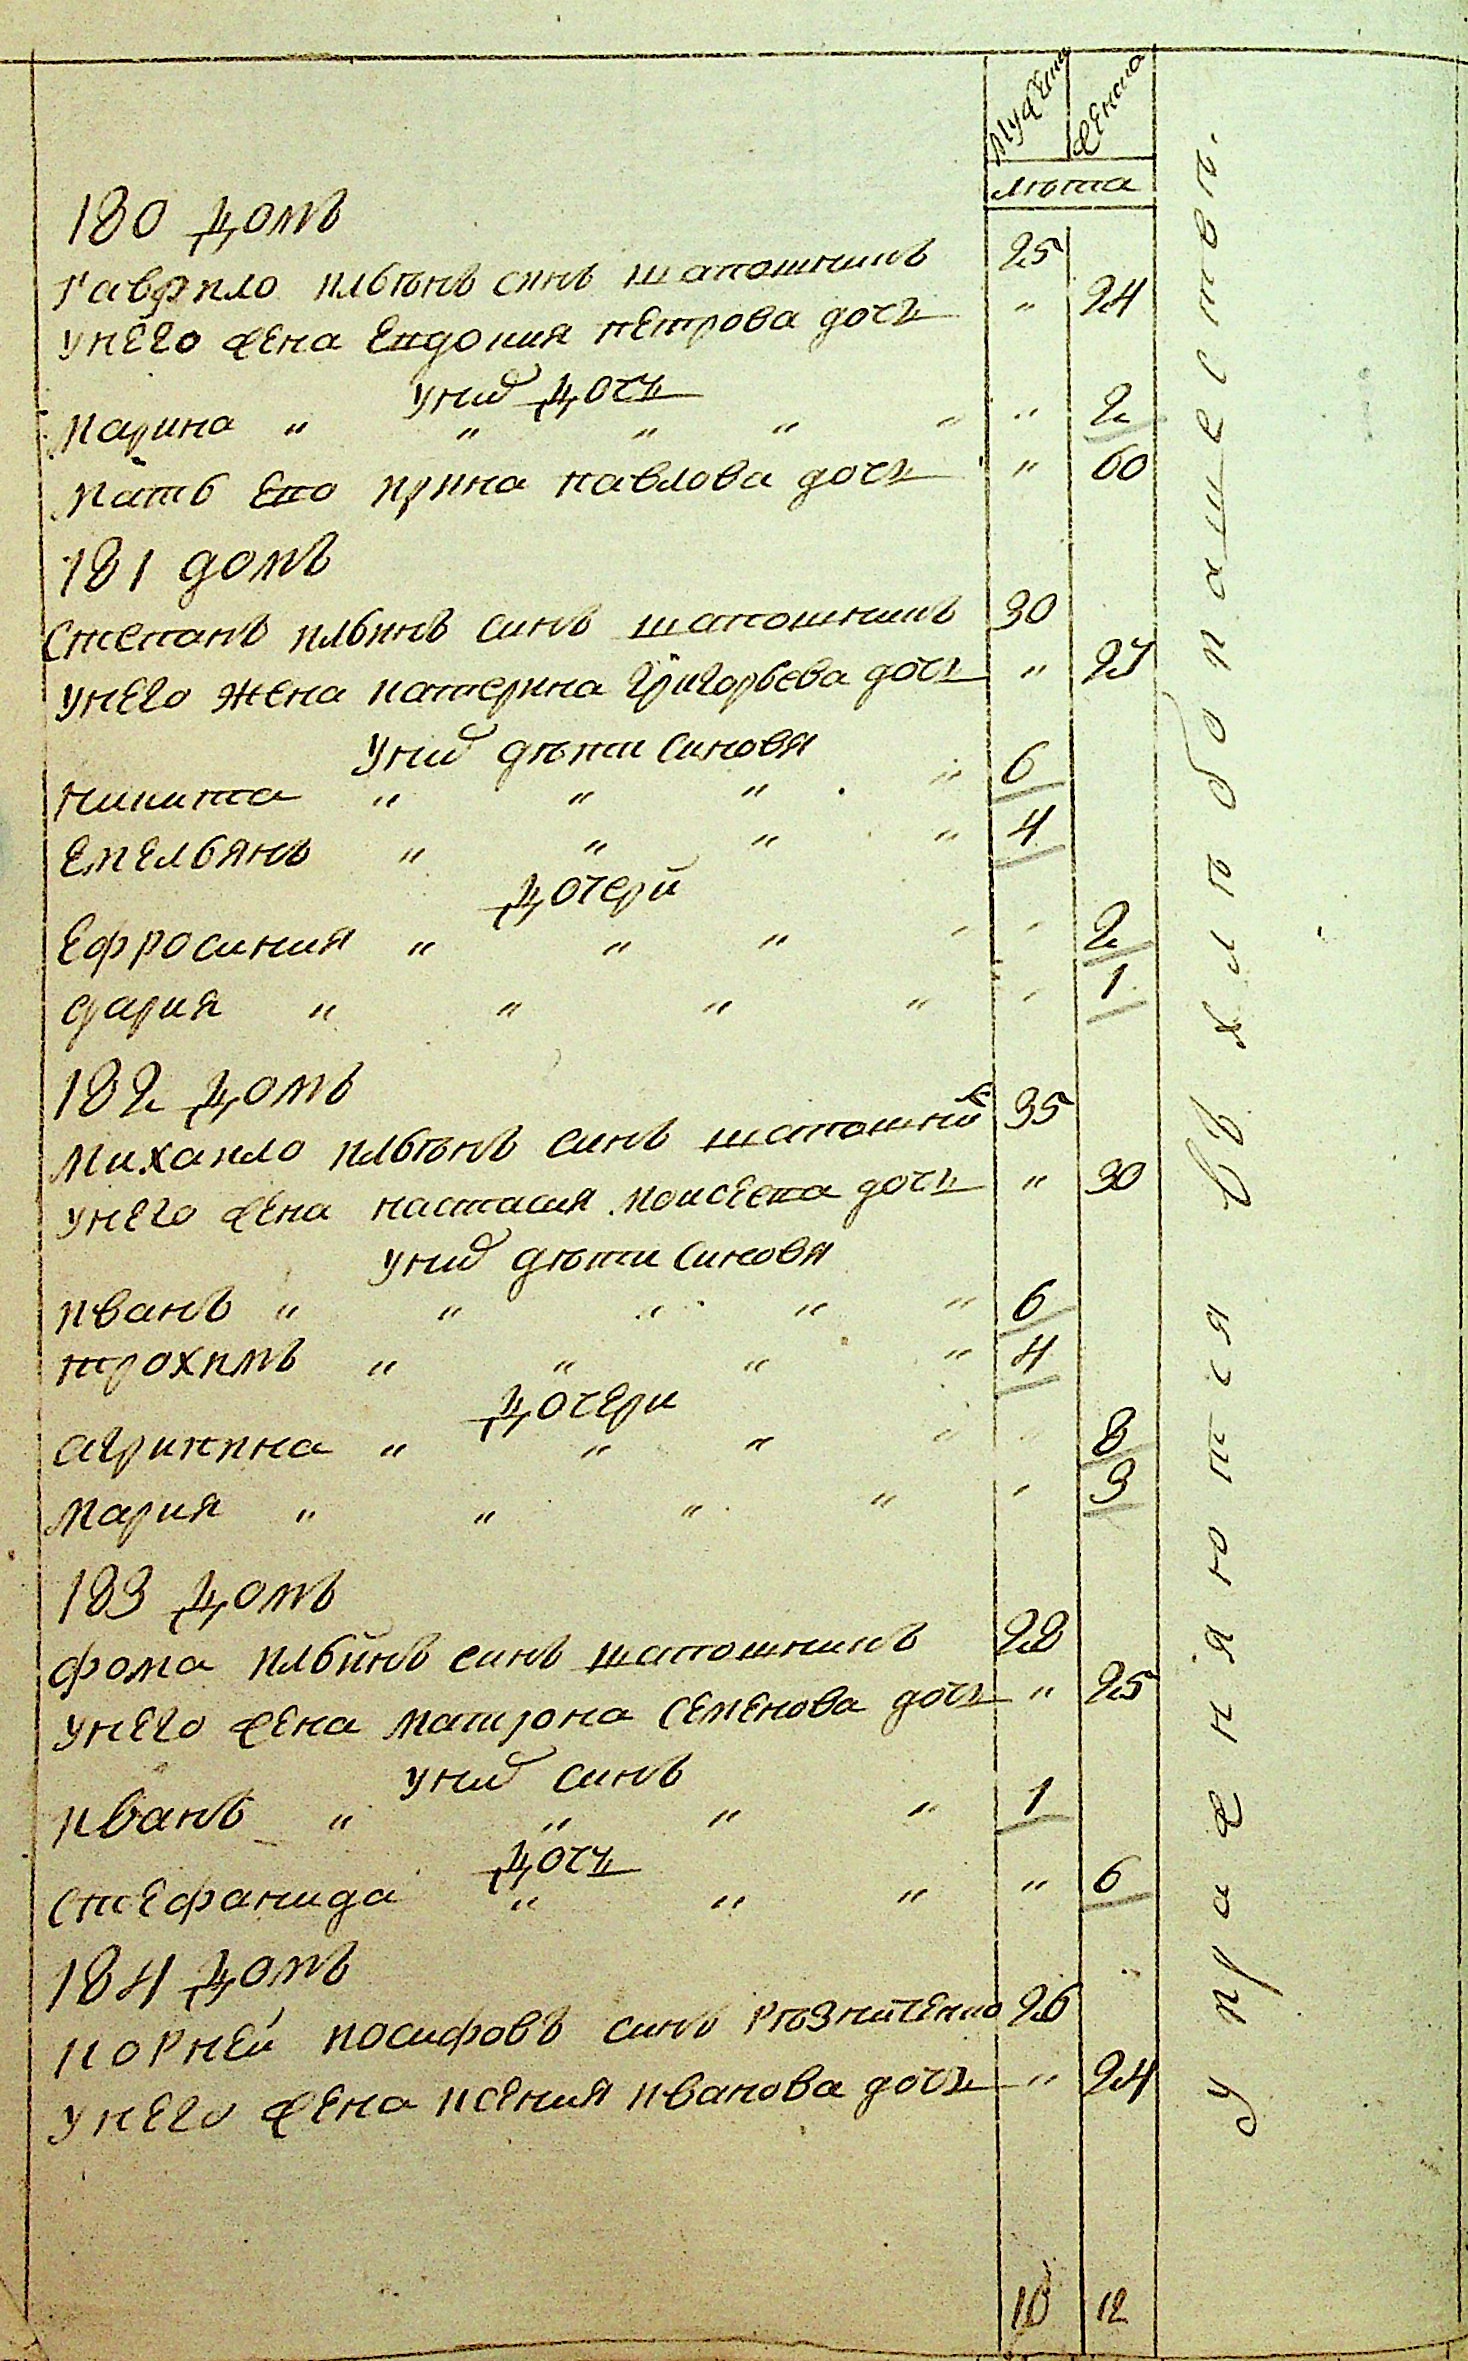 Мужеска
Женска
лѣта
180 Домъ
Гаврило Ильинъ синъ шапошникъ 25
унего жена Евдокия петрова дочь " 24
унид Дочь
Марина " " " " " " 2
мать Его Ирина павлова дочь " 60
181 домъ
Степанъ ильинъ синъ шапошникъ 30
унего жена катерина Григорьева дочь " 27
унид дѣти синовя
никита " " " " 6
Емельянъ " " " " 4
Дочери
Ефросиния " " " " " 2
" " " " " 1
182 Домъ
Михаило ильинъ синъ шапошник 35
унего жена настасия Моисеева дочь " 30
унид дѣти синовя
иванъ " " " " " 6
трохимъ " " " " 4
Дочери
агрипина " " " " " 8
Мария " " " " " 3
183 Домъ
фома ильинъ синъ шапошникъ 28
унего жена матрона Семенова дочь " 25
унид синъ
иванъ " " " " 1
Дочь
Стефанида " " " " 6
184 Домъ
корней иосифовъ синъ Рѣзниченко 26
унего жена ксения иванова дочь " 24
10 12
упражняются въ хлѣбопашествѣ.